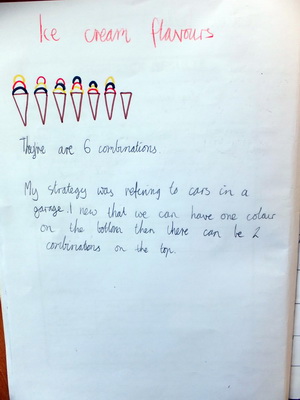 Ice cream flavours
They're are 6 combinations.
My strategy was referring to cars in a
garage. I new that we can have one colour
on the bottom then there can be 2
combinations on the top.